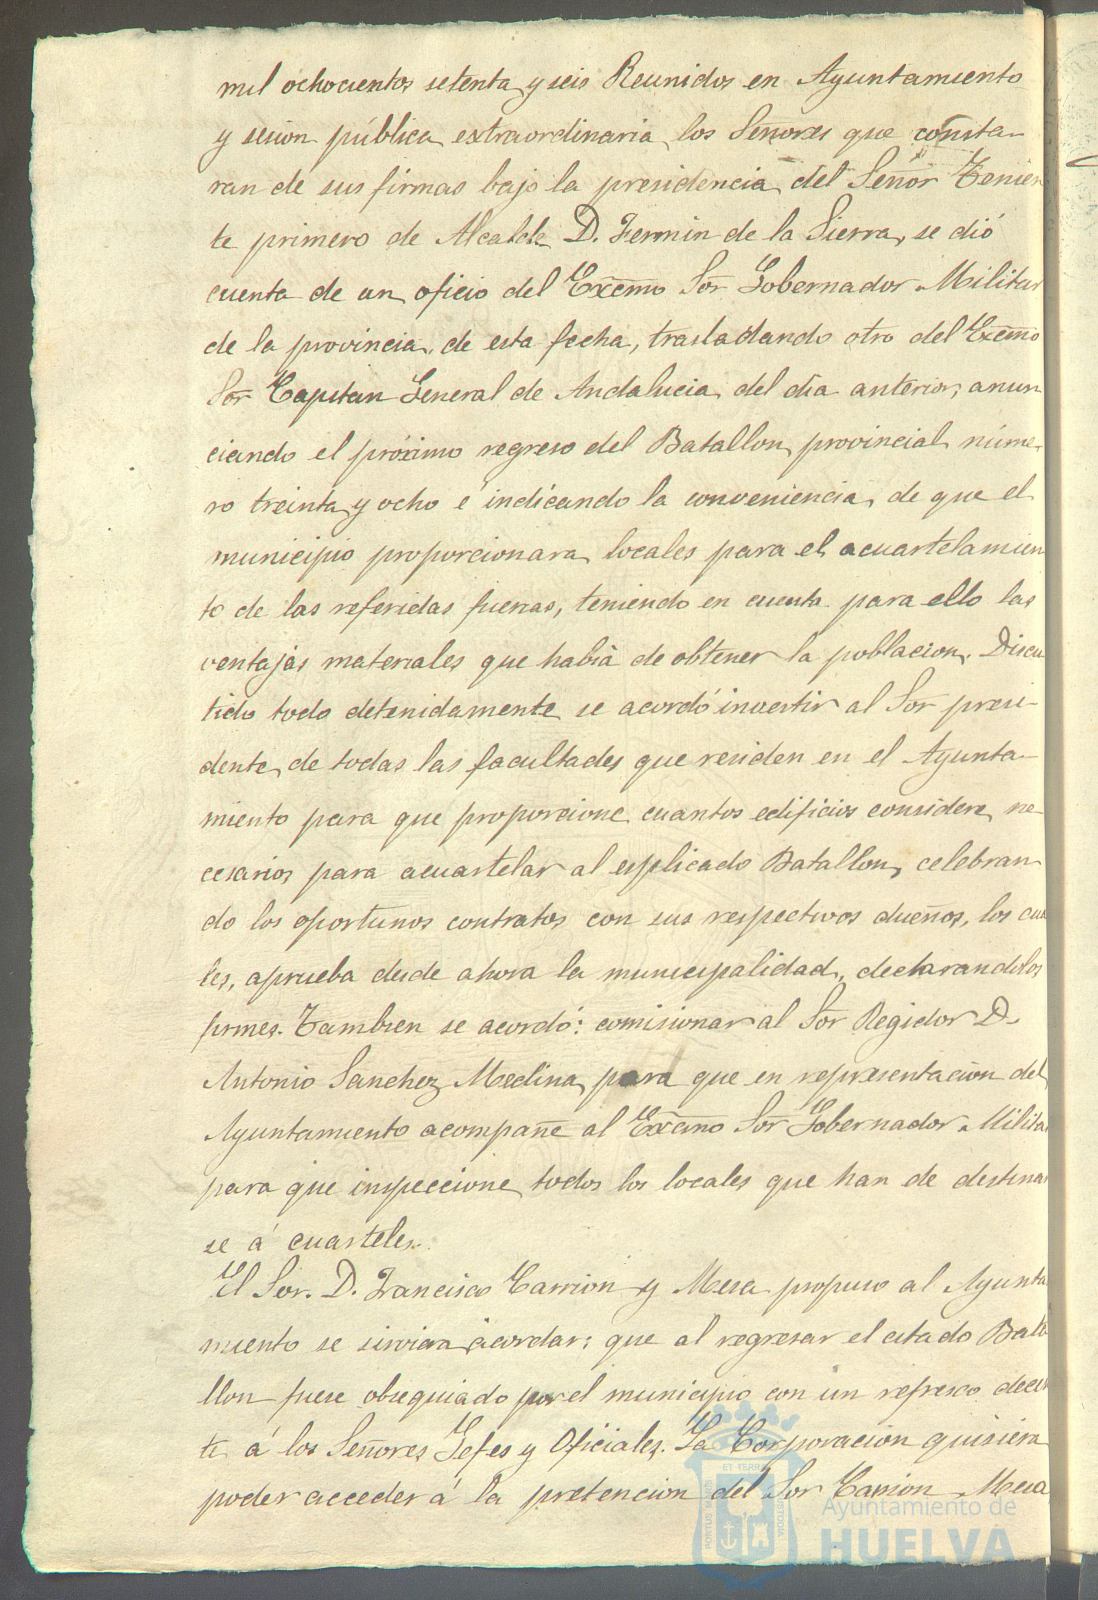 mil ochocientos setenta y seis Reunidos en Ayuntamiento
y sesion pública extraordinaria los Señores que consta-
ran de sus firmas bajo la presidencia del Señor Tenien
te primero de Alcalde D. Fermin de la Sierra, se dió
cuenta de un oficio del Excmo Sor Gobernador Militar
de la provincia, de esta fecha, trasladando otro del Excmo
Sor Capitan General de Andalucia del dia anterior, anun
ciando el próximo regreso del Batallon provincial núme-
ro treinta y ocho é indicando la conveniencia, de que el
municipio proporcionara locales para el acuartelamien
to de las referidas fuerzas, teniendo en cuenta para ello las
ventajas materiales que habia de obtener la poblacion. Discu
tido todo detenidamente se acordó investir al Sor presi-
dente de todas las facultades que residen en el Ayunta-
miento para que proporcione cuantos edificios considere ne
cesarios para acuartelar al esplicado Batallon, celebran-
do los oportunos contratos con sus respectivos dueños, los cua
les, aprueba desde ahora la municipalidad, declarandolos
firmes. Tambien se acordó: comisionar al Sor Regidor D.
Antonio Sanchez Medina, para que en representacion del
Ayuntamiento acompañe al Excmo Sor Gobernador Militar
para que inspeccione todos los locales que han de destinar
se á cuarteles.
El Sor. D. Francisco Carrion y Mesa propuso al Ayunta
miento se sirviera acordar: que al regresar el citado Bata
llon fuese obsequiado por el municipio con un refresco decen
te á los Señores Gefes y Oficiales. La Corporacion quisiera
poder acceder á la pretencion del Sor Carrion Mesa
ET TERRAE
PORTUS MARIS
CUSTODIA
Ayuntamiento de
HUELVA